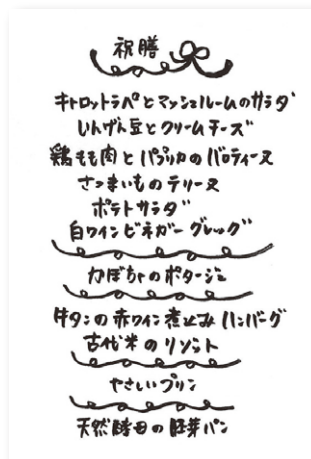 祝膳
キャロットラペとマッシュルームのサラダ
いんげん豆とクリームチーズ
鶏もも肉とパプリカのバロティーヌ
さつまいものテリーヌ
ポテトサラダ
白ワインビネガードレッシング
かぼちゃのポタージュ
牛タンの赤ワイン煮込みハンバーグ
古代米のリゾット
やさしいプリン
天然酵母の胚芽パン